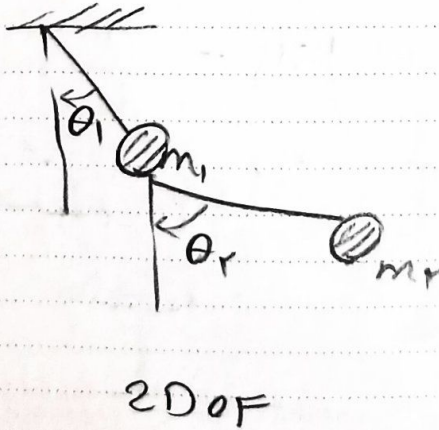 θ₁
m₁
θ۲
m۲
2DOF